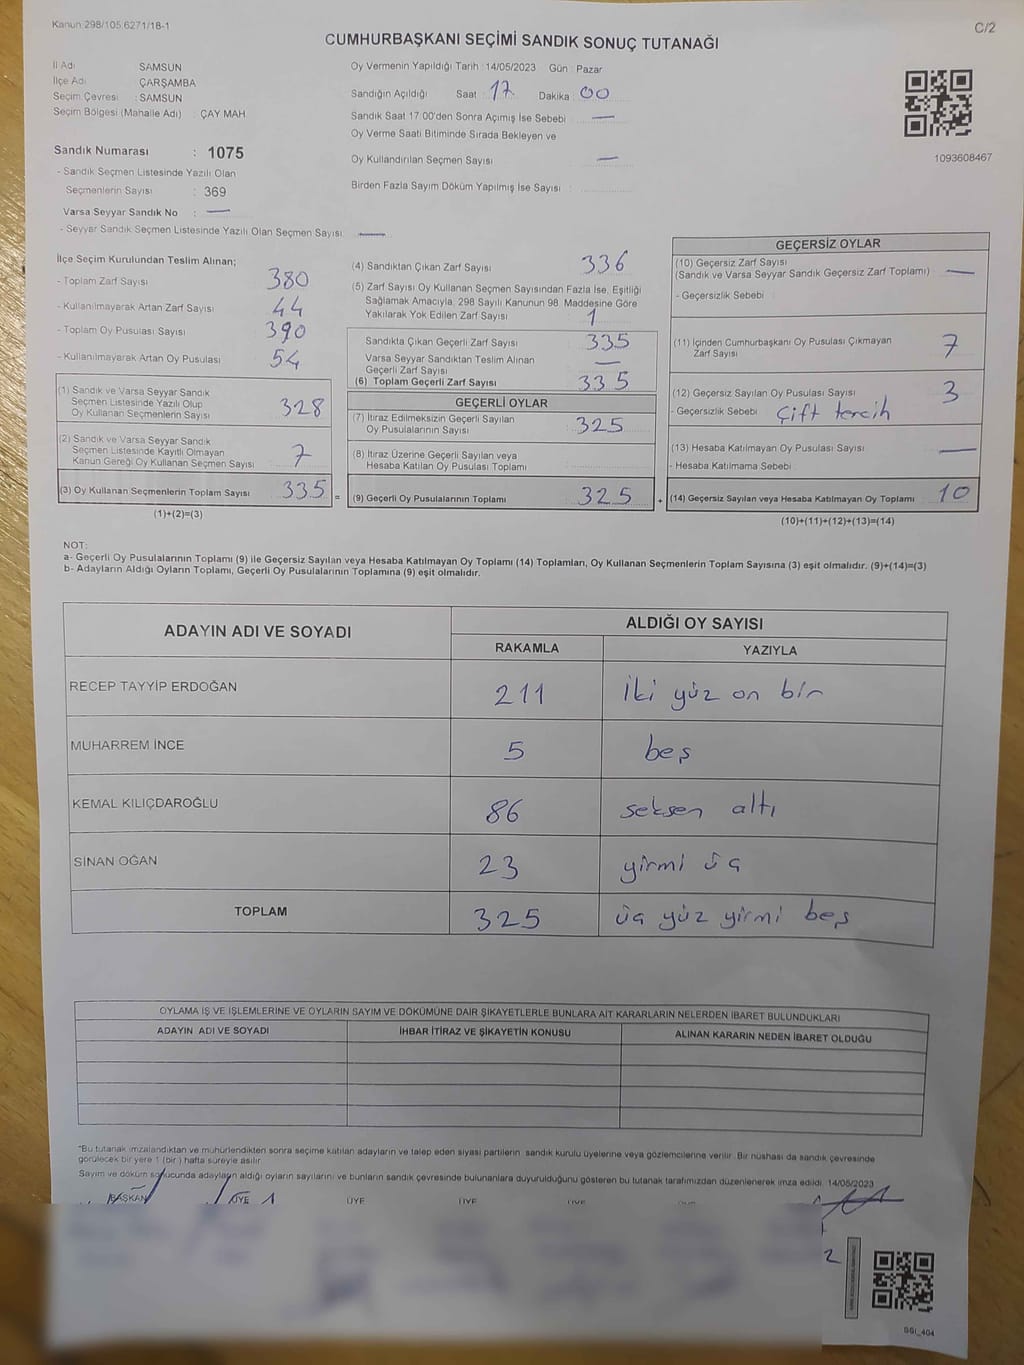 Kanun 298/105.6271/18-1
C/2
CUMHURBAŞKANI SEÇİMİ SANDIK SONUÇ TUTANAĞI
İl Adı SAMSUN
İlçe Adı ÇARŞAMBA
Seçim Çevresi : SAMSUN
Seçim Bölgesi (Mahalle Adı) : ÇAY MAH
Sandık Numarası : 1075
- Sandık Seçmen Listesinde Yazılı Olan
Seçmenlerin Sayısı : 369
Varsa Seyyar Sandık No : —
- Seyyar Sandık Seçmen Listesinde Yazılı Olan Seçmen Sayısı: —
Oy Vermenin Yapıldığı Tarih : 14/05/2023 Gün : Pazar
Sandığın Açıldığı Saat : 17 Dakika : 00
Sandık Saat 17:00'den Sonra Açımış İse Sebebi : —
Oy Verme Saati Bitiminde Sırada Bekleyen ve
Oy Kullandırılan Seçmen Sayısı : —
Birden Fazla Sayım Döküm Yapılmış İse Sayısı :
1093608467
İlçe Seçim Kurulundan Teslim Alınan;
- Toplam Zarf Sayısı 380
- Kullanılmayarak Artan Zarf Sayısı 44
- Toplam Oy Pusulası Sayısı 390
- Kullanılmayarak Artan Oy Pusulası 54
(1) Sandık ve Varsa Seyyar Sandık
Seçmen Listesinde Yazılı Olup
Oy Kullanan Seçmenlerin Sayısı 328
(2) Sandık ve Varsa Seyyar Sandık
Seçmen Listesinde Kayıtlı Olmayan
Kanun Gereği Oy Kullanan Seçmen Sayısı 7
(3) Oy Kullanan Seçmenlerin Toplam Sayısı 335 =
(1)+(2)=(3)
(4) Sandıktan Çıkan Zarf Sayısı 336
(5) Zarf Sayısı Oy Kullanan Seçmen Sayısından Fazla İse, Eşitliği
Sağlamak Amacıyla, 298 Sayılı Kanunun 98. Maddesine Göre
Yakılarak Yok Edilen Zarf Sayısı 1
Sandıkta Çıkan Geçerli Zarf Sayısı 335
Varsa Seyyar Sandıktan Teslim Alınan
Geçerli Zarf Sayısı —
(6) Toplam Geçerli Zarf Sayısı 335
GEÇERLİ OYLAR
(7) İtiraz Edilmeksizin Geçerli Sayılan
Oy Pusulalarının Sayısı 325
(8) İtiraz Üzerine Geçerli Sayılan veya
Hesaba Katılan Oy Pusulası Toplamı
(9) Geçerli Oy Pusulalarının Toplamı 325 +
GEÇERSİZ OYLAR
(10) Geçersiz Zarf Sayısı
(Sandık ve Varsa Seyyar Sandık Geçersiz Zarf Toplamı) —
- Geçersizlik Sebebi :
(11) İçinden Cumhurbaşkanı Oy Pusulası Çıkmayan
Zarf Sayısı 7
(12) Geçersiz Sayılan Oy Pusulası Sayısı 3
- Geçersizlik Sebebi : Çift tercih
(13) Hesaba Katılmayan Oy Pusulası Sayısı —
- Hesaba Katılmama Sebebi :
(14) Geçersiz Sayılan veya Hesaba Katılmayan Oy Toplamı 10
(10)+(11)+(12)+(13)=(14)
NOT:
a- Geçerli Oy Pusulalarının Toplamı (9) ile Geçersiz Sayılan veya Hesaba Katılmayan Oy Toplamı (14) Toplamları, Oy Kullanan Seçmenlerin Toplam Sayısına (3) eşit olmalıdır. (9)+(14)=(3)
b- Adayların Aldığı Oyların Toplamı, Geçerli Oy Pusulalarının Toplamına (9) eşit olmalıdır.
ADAYIN ADI VE SOYADI ALDIĞI OY SAYISI
RAKAMLA YAZIYLA
RECEP TAYYİP ERDOĞAN 211 İki yüz on bir
MUHARREM İNCE 5 beş
KEMAL KILIÇDAROĞLU 86 seksen altı
SİNAN OĞAN 23 yirmi üç
TOPLAM 325 üç yüz yirmi beş
OYLAMA İŞ VE İŞLEMLERİNE VE OYLARIN SAYIM VE DÖKÜMÜNE DAİR ŞİKAYETLERLE BUNLARA AİT KARARLARIN NELERDEN İBARET BULUNDUKLARI
ADAYIN ADI VE SOYADI İHBAR İTİRAZ VE ŞİKAYETİN KONUSU ALINAN KARARIN NEDEN İBARET OLDUĞU
*Bu tutanak imzalandıktan ve mühürlendikten sonra seçime katılan adayların ve talep eden siyasi partilerin sandık kurulu üyelerine veya gözlemcilerine verilir. Bir nüshası da sandık çevresinde
görülecek bir yere 1 (bir) hafta süreyle asılır.
Sayım ve döküm sonucunda adayların aldığı oyların sayılarını ve bunların sandık çevresinde bulunanlara duyurulduğunu gösteren bu tutanak tarafımızdan düzenlenerek imza edildi. 14/05/2023
BAŞKAN ÜYE ÜYE ÜYE ÜYE
2